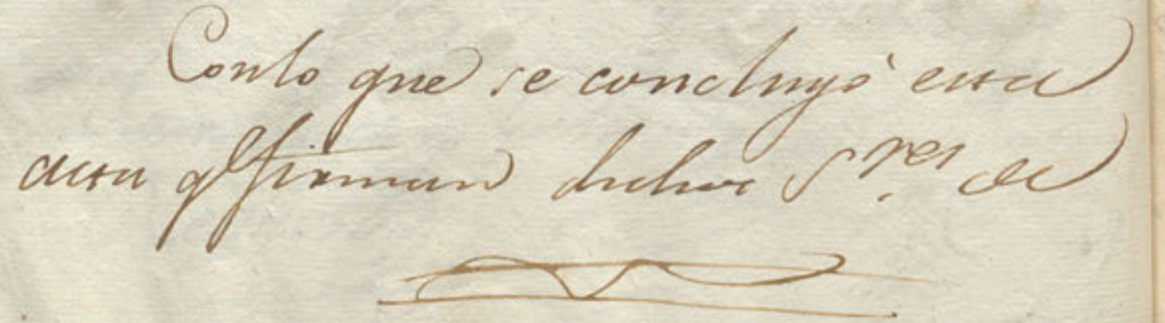 Conlo que se concluyò esta
acta q.e firman dichos S.res de